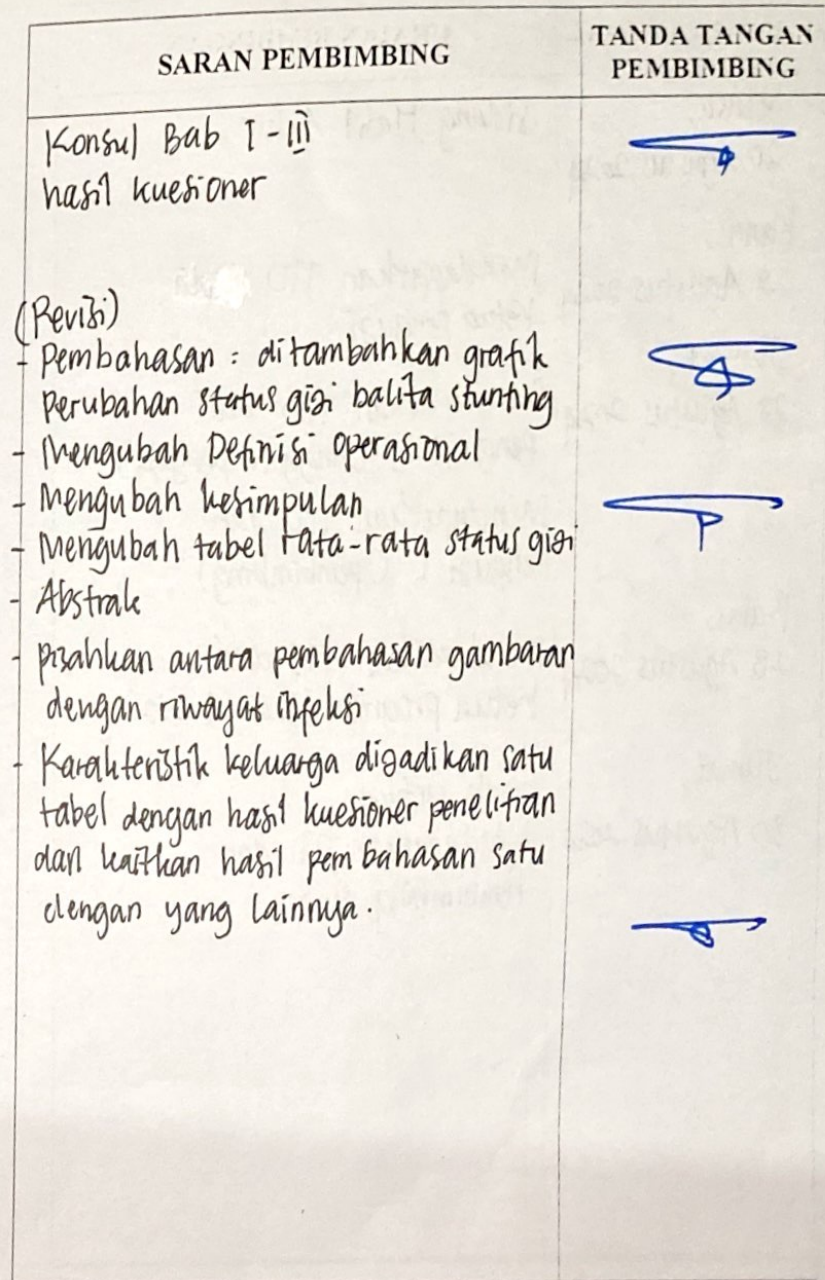 SARAN PEMBIMBING
TANDA TANGAN
PEMBIMBING
Konsul Bab I - III
hasil kuesioner
(Revisi)
- Pembahasan : ditambahkan grafik
perubahan status gizi balita stunting
- Mengubah Definisi operasional
- Mengubah kesimpulan
- Mengubah tabel rata-rata status gizi
- Abstrak
- pisahkan antara pembahasan gambaran
dengan riwayat infeksi
- Karakteristik keluarga dijadikan satu
tabel dengan hasil kuesioner penelitian
dan kaitkan hasil pembahasan satu
dengan yang lainnya.